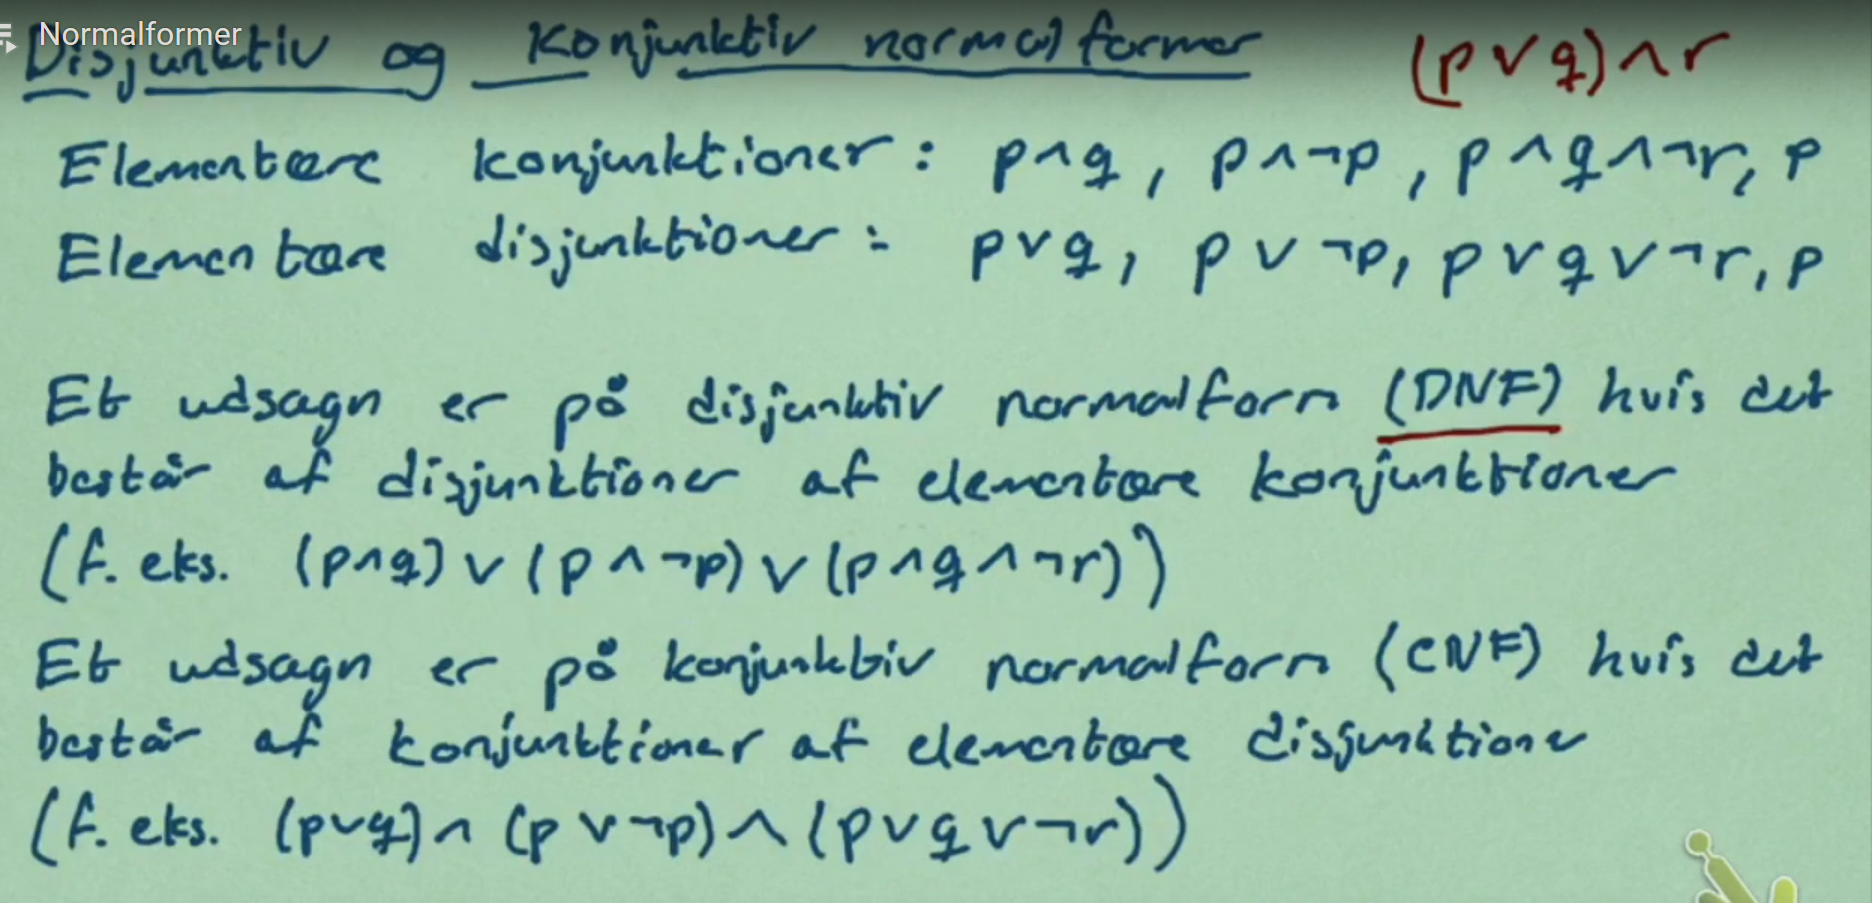 Normalformer
Disjunktiv og konjunktiv normalformer (p ∨ q) ∧ r
Elementære konjunktioner: p ∧ q, p ∧ ¬p, p ∧ q ∧ ¬r, p
Elementære disjunktioner: p ∨ q, p ∨ ¬p, p ∨ q ∨ ¬r, p
Et udsagn er på disjunktiv normalform (DNF) hvis det
består af disjunktioner af elementære konjunktioner
(f. eks. (p ∧ q) ∨ (p ∧ ¬p) ∨ (p ∧ q ∧ ¬r))
Et udsagn er på konjunktiv normalform (CNF) hvis det
består af konjunktioner af elementære disjunktioner
(f. eks. (p ∨ q) ∧ (p ∨ ¬p) ∧ (p ∨ q ∨ ¬r))